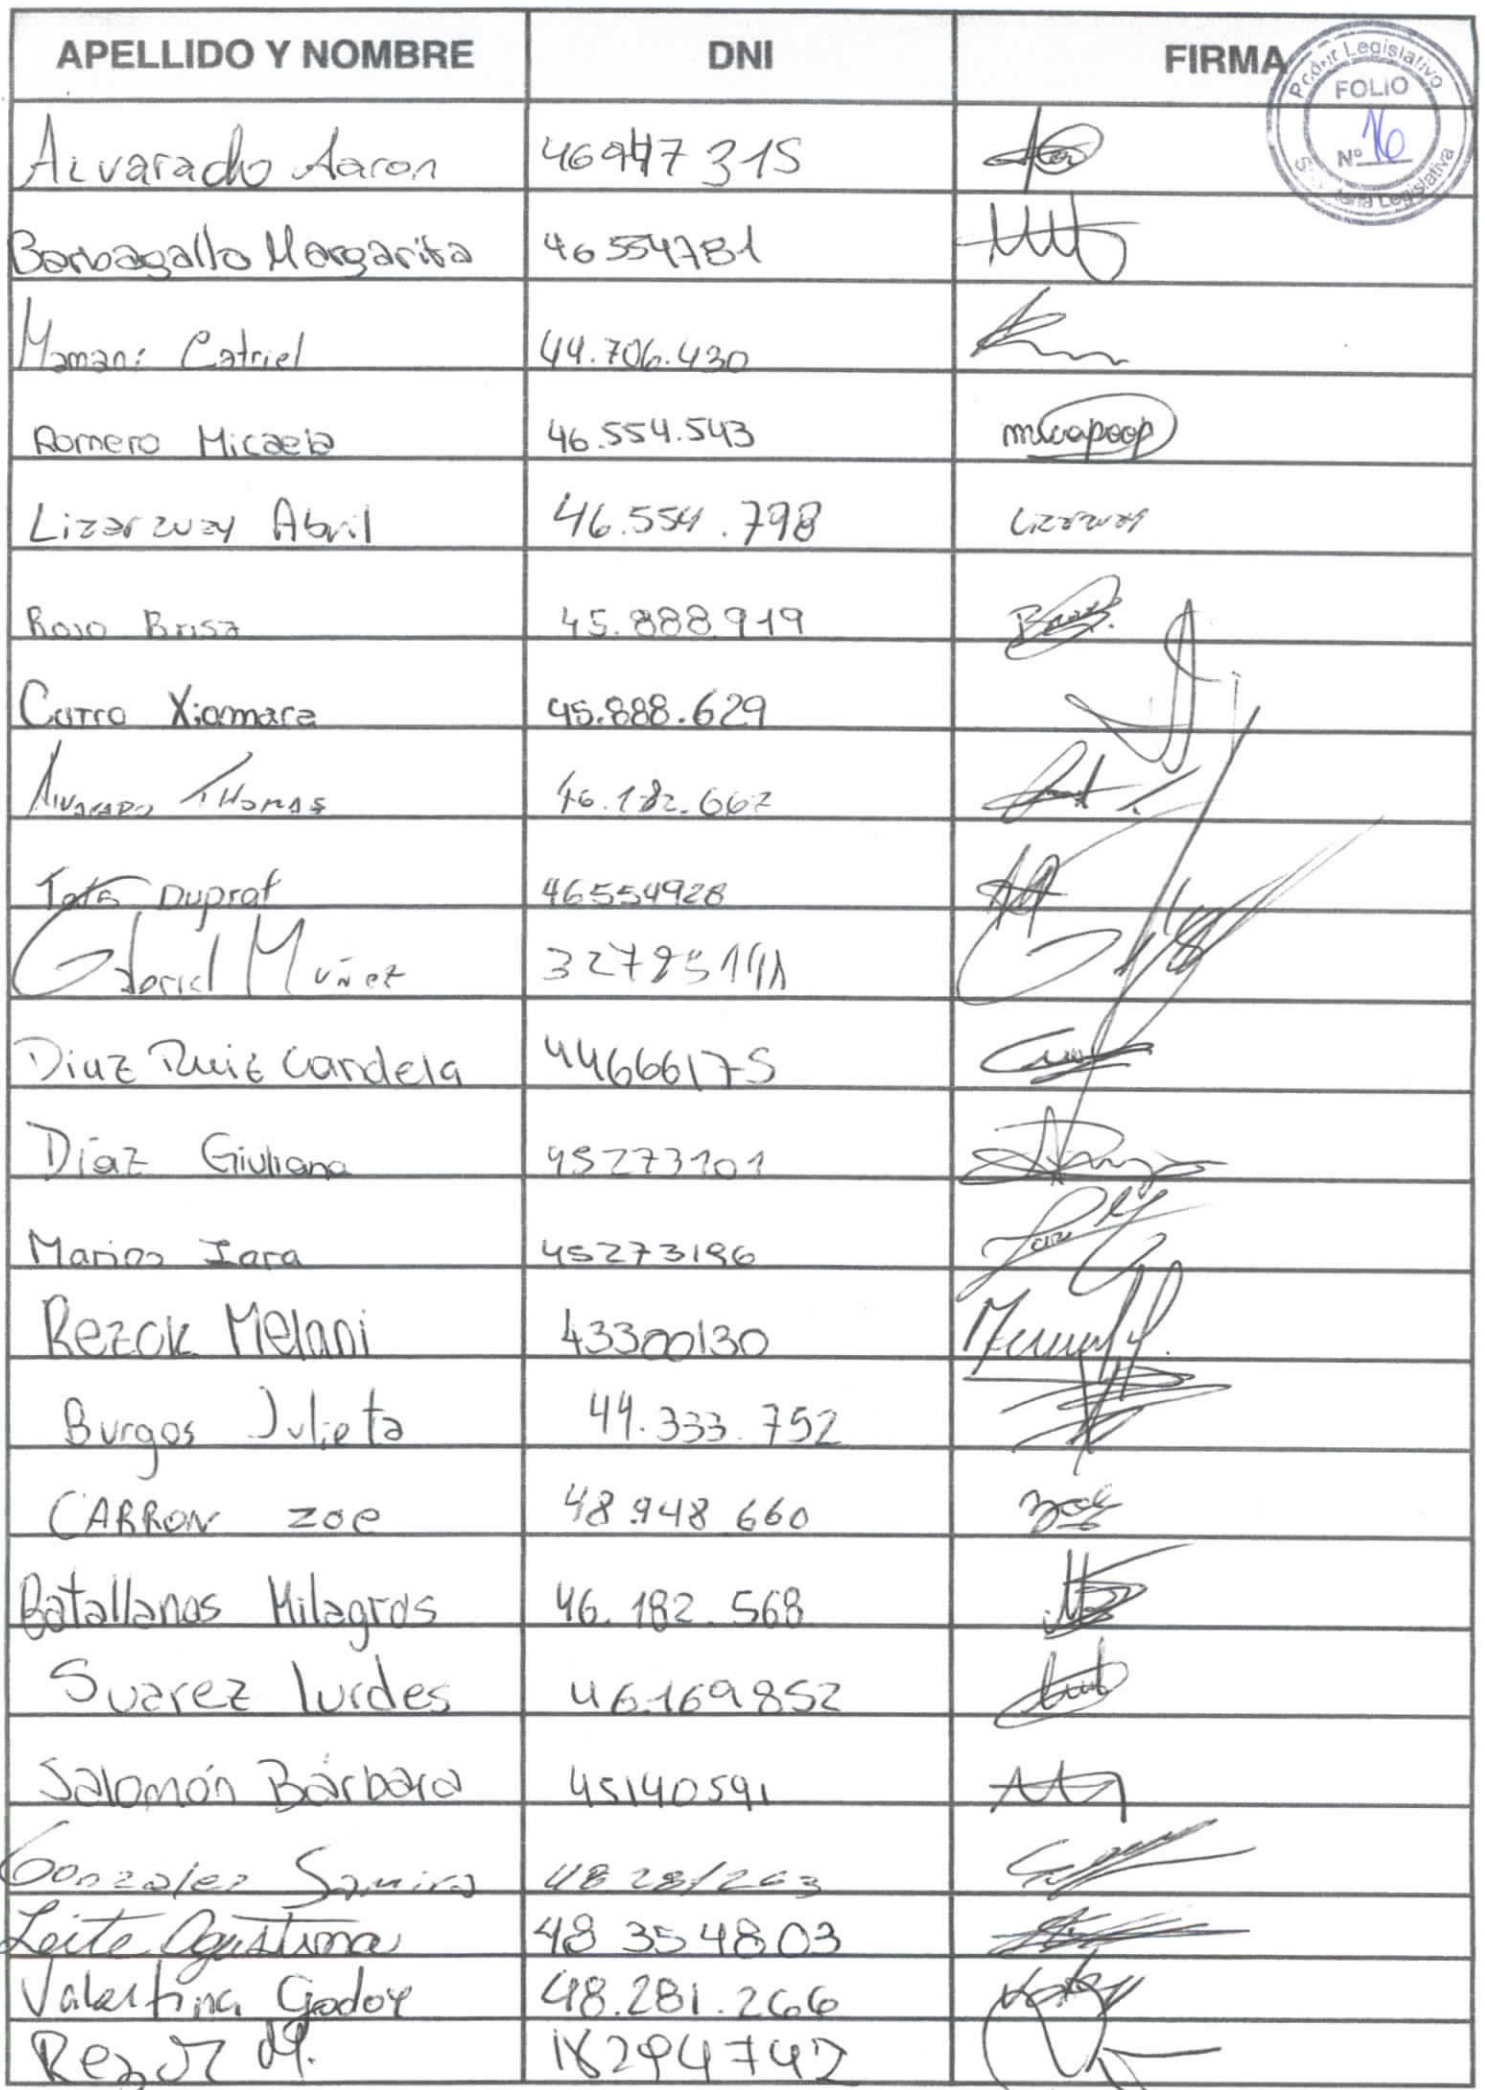 APELLIDO Y NOMBRE DNI FIRMA
Poder Legislativo
FOLIO
Nº 16
Secretaría Legislativa
Alvarado Aaron 46947315
Barbagallo Margarita 46554781
Mamani Catriel 44.706.430
Romero Micaela 46.554.543 micapoop
Lizarzuay Abril 46.554.798 Lizarzuay
Rojo Brisa 45.888.919
Curro Xiomara 45.888.629
Alvarado Thomas 46.182.667
Duprat 46554928
Gabriel Muñoz
Diaz Ruiz Candela 44666175
Díaz Giuliana 45273101
Marino Iara 45273196
Rezok Melani 43300130
Burgos Julieta 44.333.752
CARRON zoe 48.948 660 zoe
Batallanos Milagros 46.182.568
Suarez lurdes 46.169852
Salomón Bárbara 45140591
Gonzalez Samira 48 281263
Leite Agustina 48 354803
Valentina Godoy 48.281.266
M. 18294742